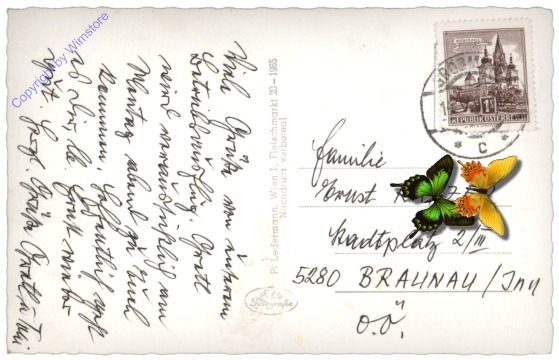 Copyright by Wimstore
Viele Grüße von unserem
Betriebsausflug. Gretl
wird voraussichtlich am
Montag abend zu Euch
kommen. Hoffentlich geht
es Dir, lb. Ernst wieder
Grüße Gretl
P. Ledermann, Wien I, Fleischmarkt 20 - 1965
Nachdruck verboten!
REPUBLIK ÖSTERREICH
1S
* C *
Familie
Ernst
Stadtplatz 2/III
5280 BRAUNAU / Inn
O.Ö.